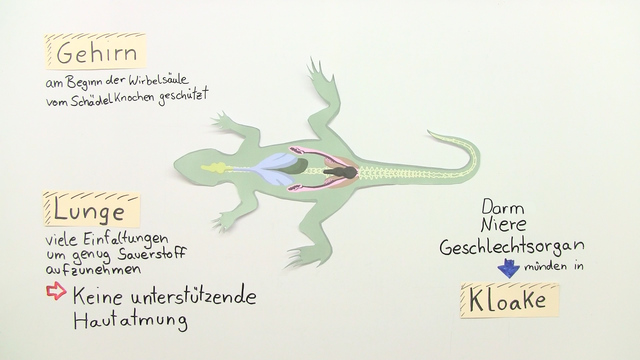 Gehirn
am Beginn der Wirbelsäule
vom Schädelknochen geschützt
Lunge
viele Einfaltungen
um genug Sauerstoff
aufzunehmen
Keine unterstützende
Hautatmung
Darm
Niere
Geschlechtsorgan
münden in
Kloake